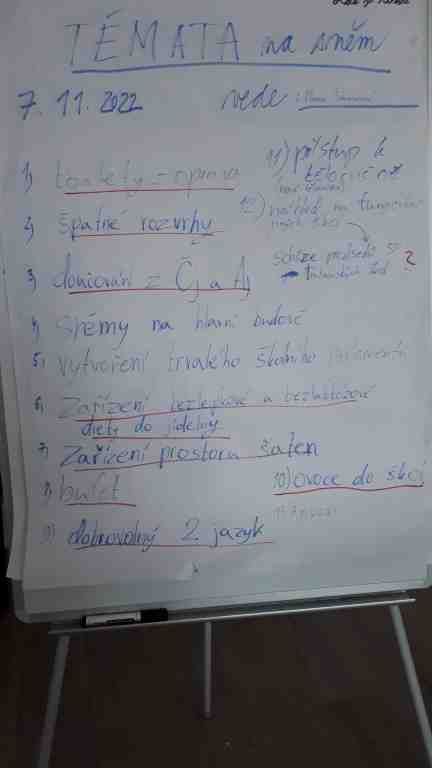 TÉMATA na sněm
7. 11. 2022 vede:
1) toalety - oprava
2) špatné rozvrhy
3) doučování z Čj a Aj
4) sněmy na hlavní budově
5) vytvoření trvalého školního parlamentu
6) Zařízení bezlepkové a bezlaktózové
diety do jídelny
7) Zařízení prostoru šaten
8) bufet
9) dobrovolný 2. jazyk
10) ovoce do škol
11) přístup k
tělocvičně
12) náhled na fungování
jiných škol
schůze předsedů
?